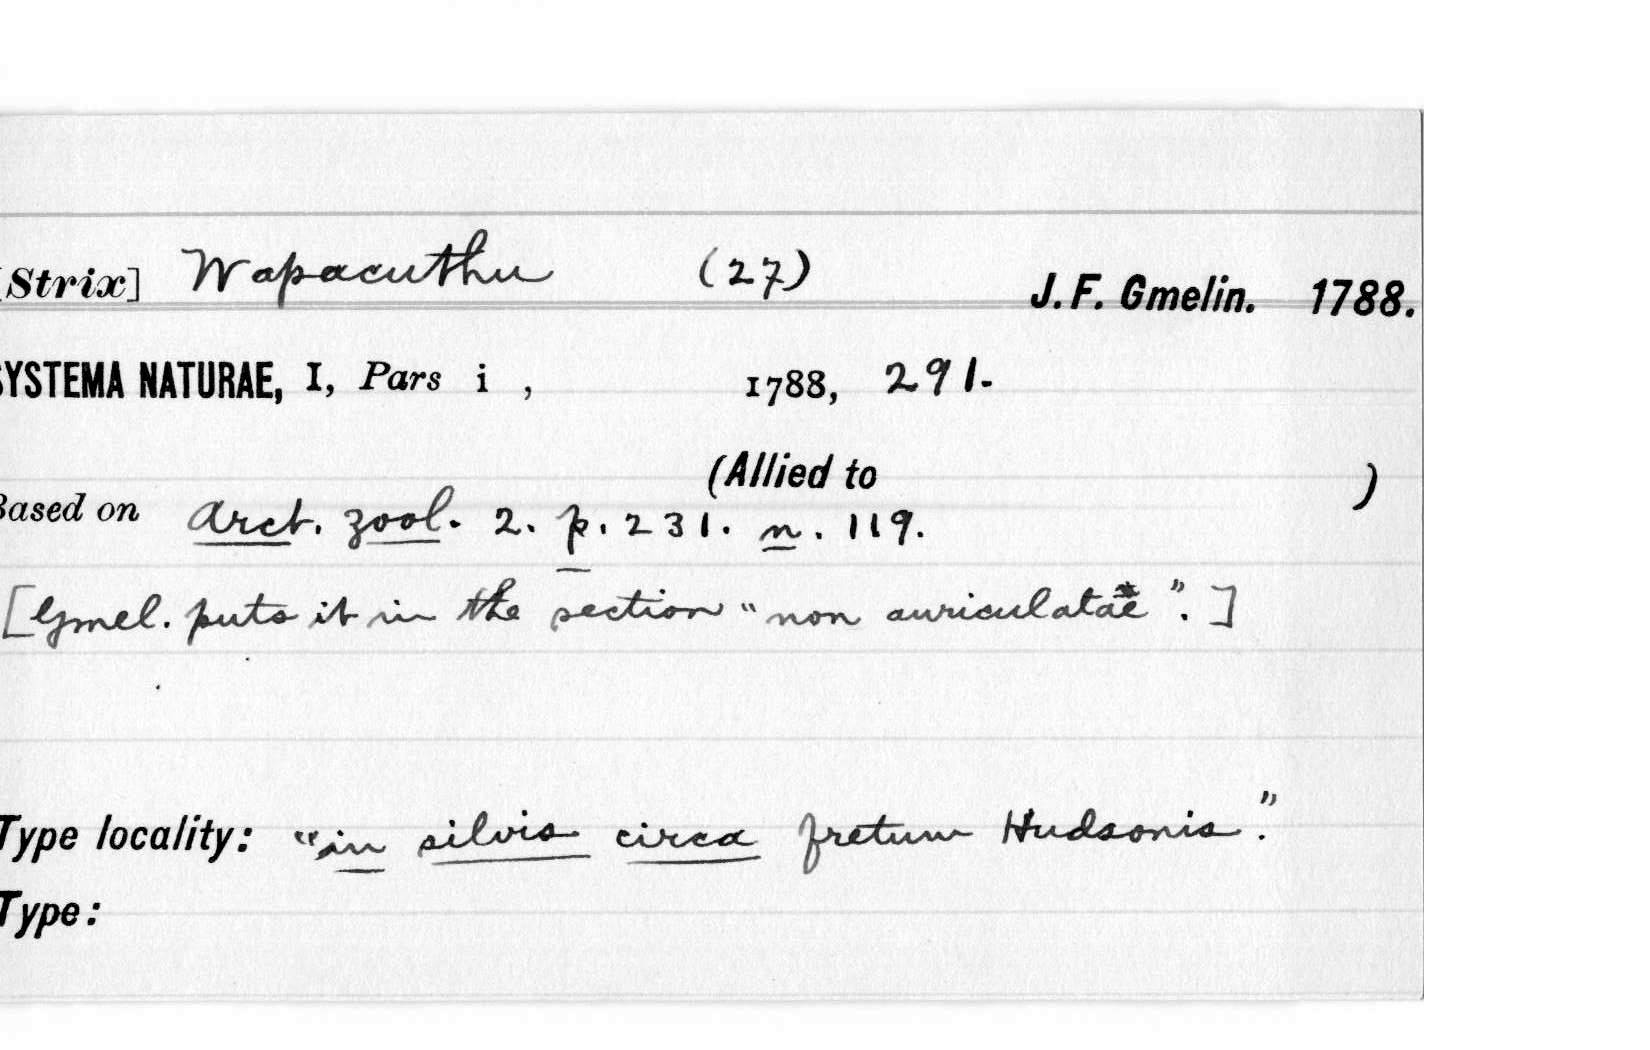 [Strix] Wapacuthu (27) J. F. Gmelin. 1788.
SYSTEMA NATURAE, I, Pars i , 1788, 291.
(Allied to )
Based on Arct. zool. 2. p. 231. n. 119.
[Gmel. puts it in the section "non auriculatae".]
Type locality: "in silvis circa fretum Hudsonis".
Type: